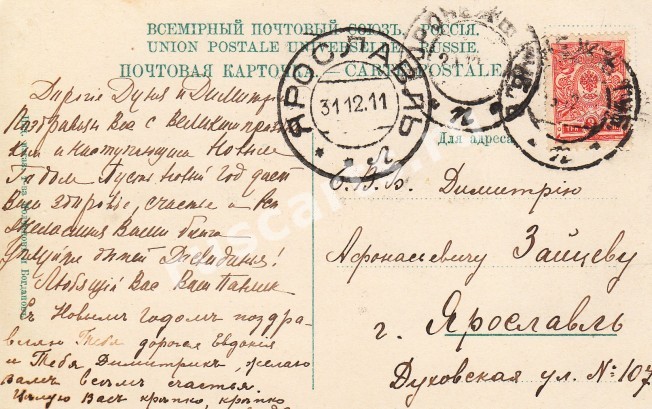 ВСЕМІРНЫЙ ПОЧТОВЫЙ СОЮЗЪ. РОССІЯ.
UNION POSTALE UNIVERSELLE. RUSSIE.
ПОЧТОВАЯ КАРТОЧКА — CARTE POSTALE
ЯРОСЛАВЛЬ
31 12.11
Для адреса.
Дорогіе Дуня и Димитрій
Поздравляю Васъ с Великим празд
ником и наступающим Новым
Годом Пусть новый год дает
Вам здоровіе, счастье и
желания Ваши
Любящій Вас Ваш
Съ Новымъ Годомъ поздра-
вляю Тебя дорогая Евдокія
и Тебя Димитрій, желаю
вамъ всѣмъ счастья.
Цѣлую Васъ крѣпко, крѣпко
Е.В.Б. Димитрію
Афонасиевичу Зайцеву
г. Ярославль
Духовская ул. № 107
ruscards.ru